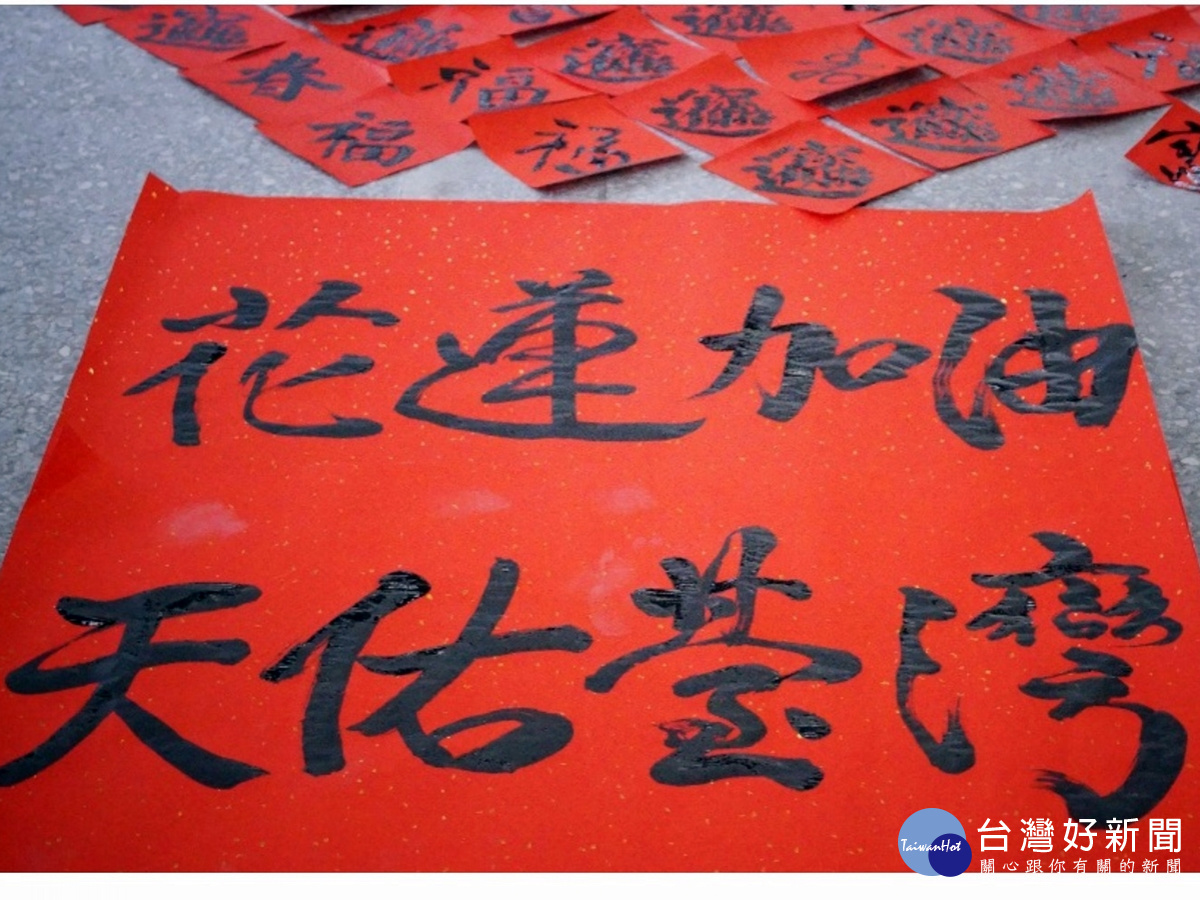 春
福
福
花蓮加油
天佑臺灣
TaiwanHot
台灣好新聞
關心跟你有關的新聞